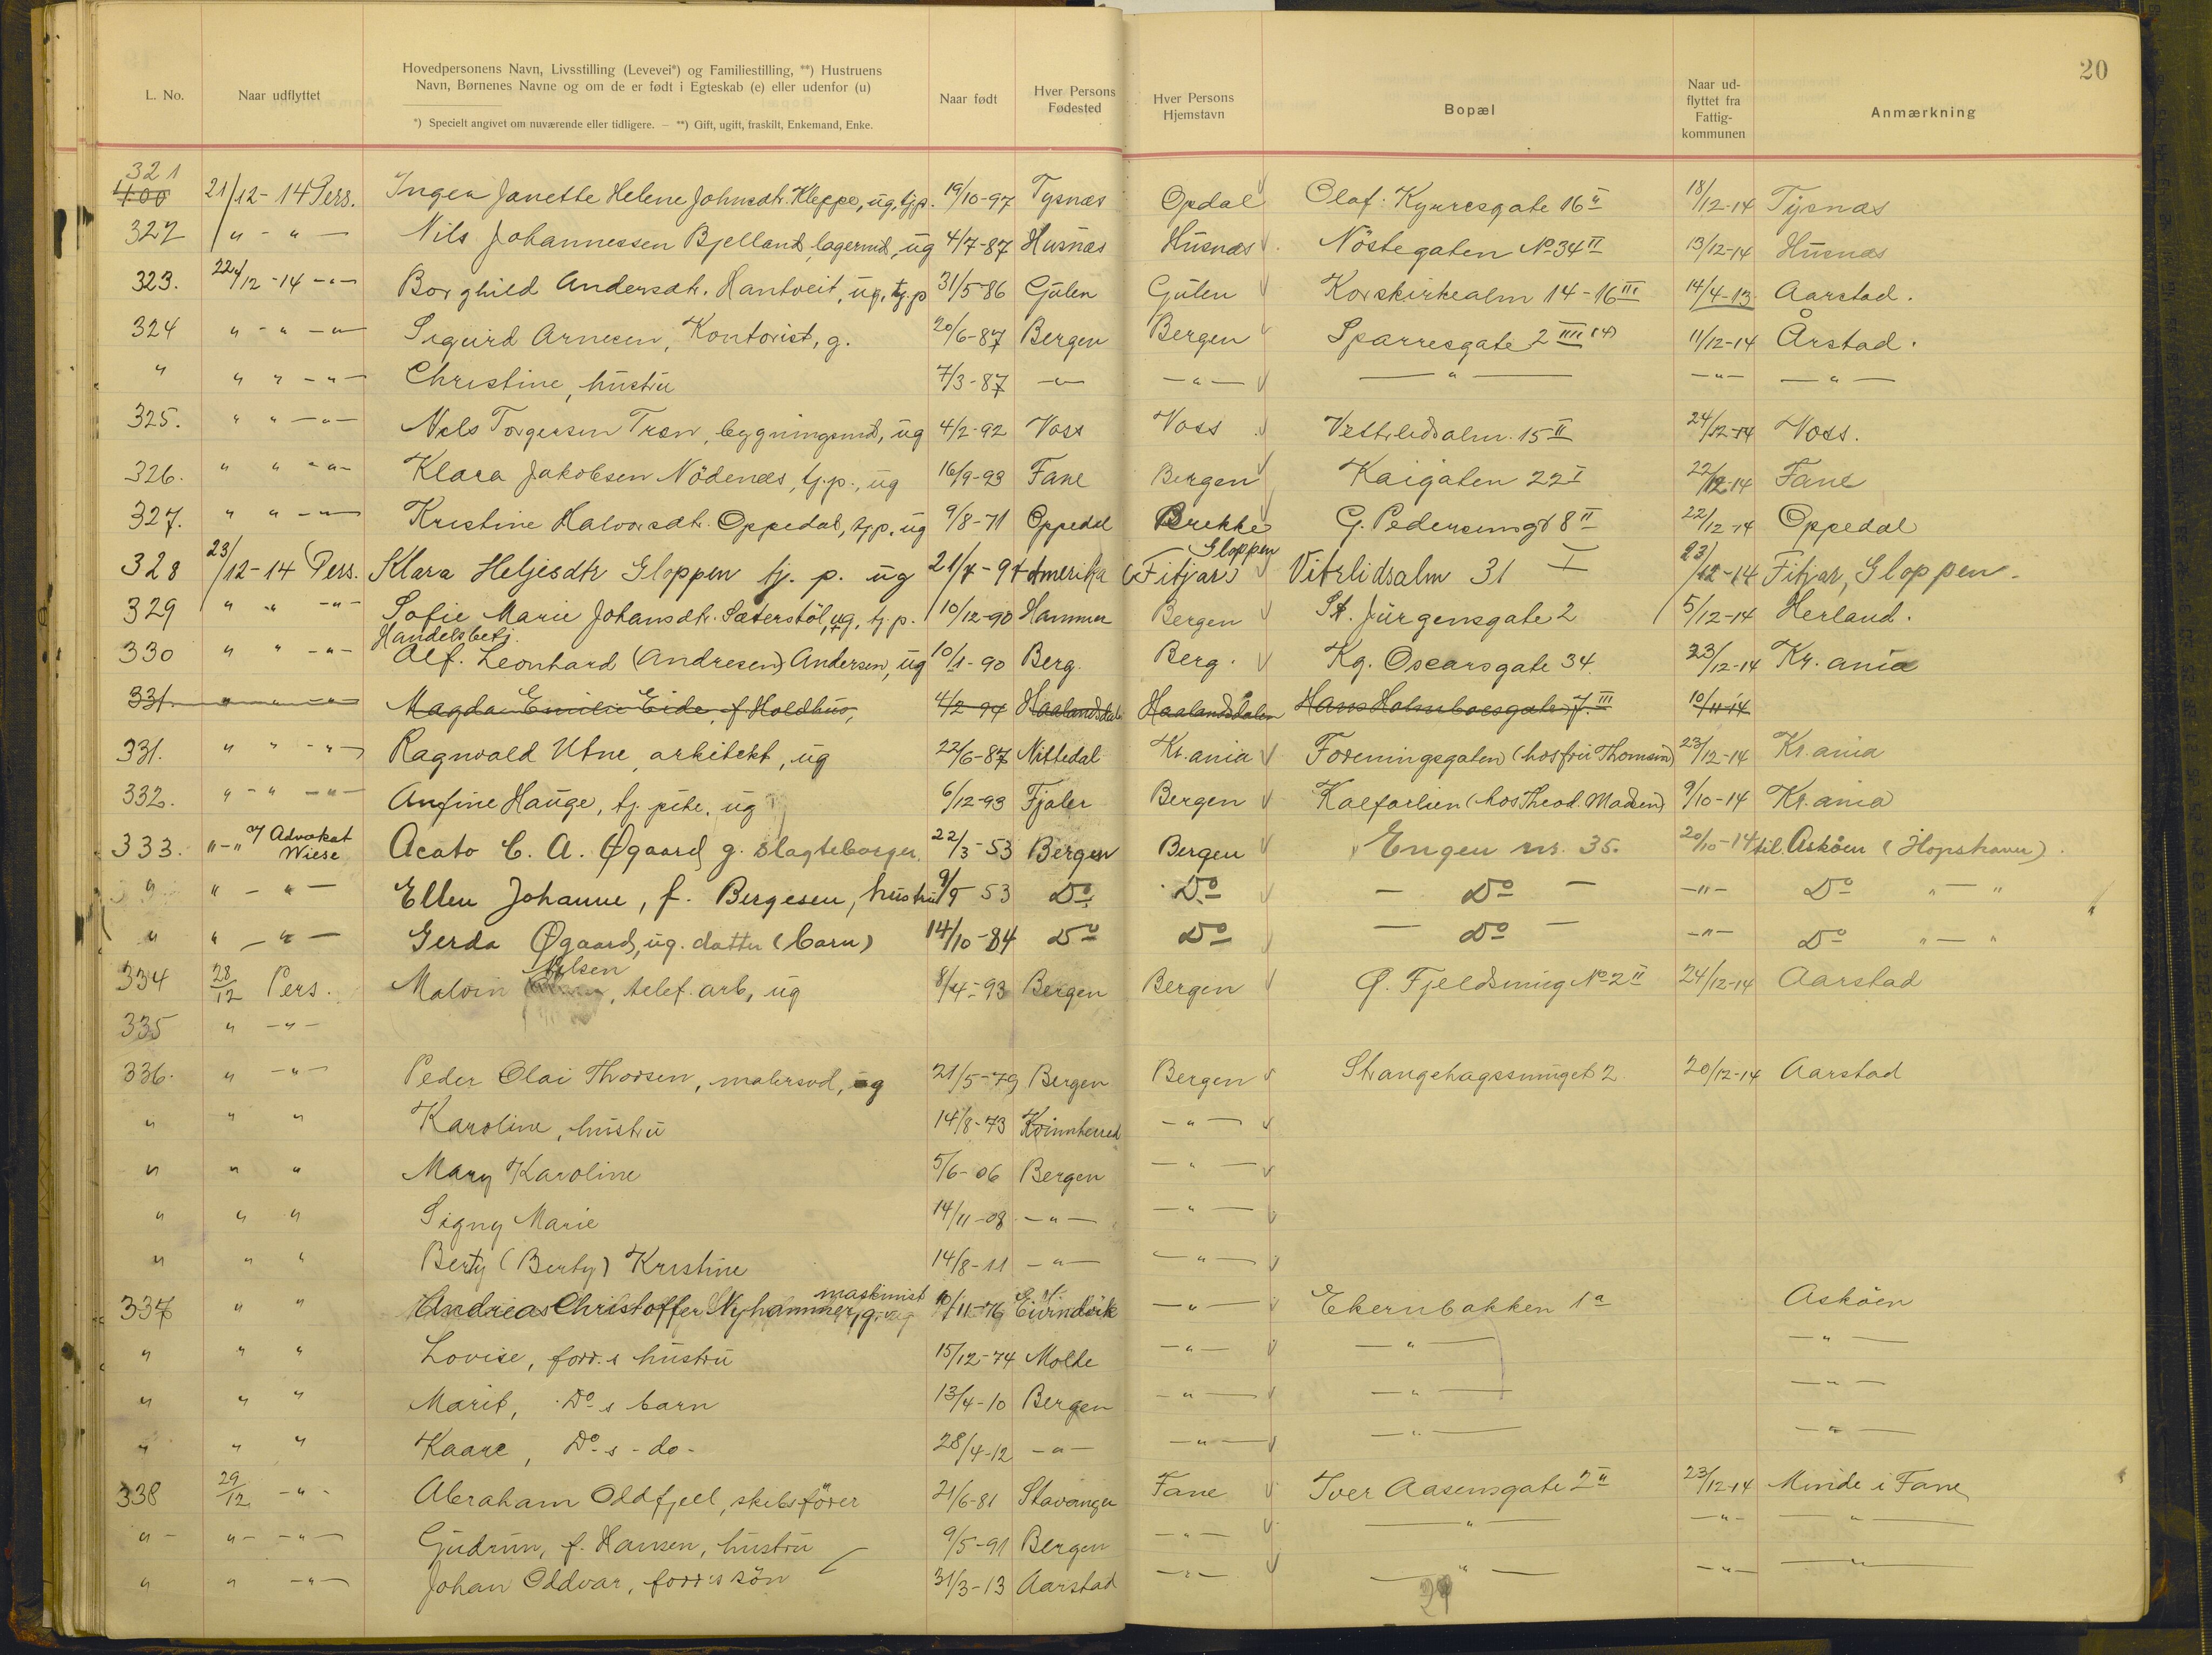 20
L. No.
Naar udflyttet
Hovedpersonens Navn, Livsstilling (Levevei*) og Familiestilling, **) Hustruens
Navn, Børnenes Navne og om de er født i Egteskab (e) eller udenfor (u)
*) Specielt angivet om nuværende eller tidligere. — **) Gift, ugift, fraskilt, Enkemand, Enke.
Naar født
Hver Persons
Fødested
Hver Persons
Hjemstavn
Bopæl
Naar ud-
flyttet fra
Fattig-
kommunen
Anmærkning
321
400 21/12-14 Pers. Inger Janette Helene Johnsdtr. Kleppe, ug, tj.p. 19/10-97 Tysnæs Opdal Olaf Kyrresgate 16 II 18/12-14 Tysnæs
322 " - " - Nils Johannessen Bjelland, lagermd, ug 4/7-87 Husnæs Husnæs Nöstegaten No 34 II 13/12-14 Husnæs
323. 22/12-14 - " - Borghild Andersdtr. Hantveit, ug, tj.p 31/5-86 Gulen Gulen Korskirkealm 14-16 III 14/4-13 Aarstad.
324 " - " - " - Sigurd Arnesen, Kontorist, g. 20/6-87 Bergen Bergen Sparresgate 2 IIII (4) 11/12-14 Årstad.
" " " - " - Christine, hustru 7/3-87 - " - - " - - " - - " - - " -
325. " " - " - Nels Torgersen Træn, bygningsmd, ug 4/2-92 Voss Voss Vetrlidsalm. 15 II 24/12-14 Voss.
326. " " - " - Klara Jakobsen Nödenes, tj.p., ug 16/9-93 Fane Bergen Kaigaten 22 I 22/12-14 Fane
327. " " - " - Kristine Halvorsdtr. Oppedal, tj.p. ug 9/8-71 Oppedal Brekke G. Pedersensgt 8 II 22/12-14 Oppedal
Gloppen
328 23/12-14 Pers. Klara Heljesdtr Gloppen tj. p. ug 21/7-97 Amerika (Fitjar) Vitrlidsalm 31 I 23/12-14 Fitjar, Gloppen.
329 " " - " - Sofie Marie Johansdtr. Sæterstöl, ug, tj.p. 10/12-90 Hammer Bergen St. Jürgensgate 2 5/12-14 Herland.
Handelsbetj.
330 " " - " - Alf. Leonhard (Andresen) Andersen, ug 10/1-90 Berg. Berg. Kg. Oscarsgate 34. 23/12-14 Kr. ania
331. " " - " - Magda Emilie Eide, f. Holdhus, 4/2-94 Haalandsdal Haalandsdalen Hans Holmboesgate 7. III 10/11-14
331. " " - " - Ragnvald Utne, arkitekt, ug 22/6-87 Nittedal Kr. ania Foreningsgaten (hos fru Thomsen) 23/12-14 Kr. ania
332. " - " - " - Anfine Hauge, tj. pike. ug 6/12-93 Fjaler Bergen Kalfarlien (hos Theod. Madsen) 9/10-14 Kr. ania
333. " - " Advokat Wiese Acato C. A. Øgaard g. slagteborger. 22/3-53 Bergen Bergen Engen nr. 35. 20/10-14 til Asköen (Hopshavn).
" " - " - Ellen Johanne, f. Bergesen, hustru 9/5 53 Do Do - Do - - " - Do " - "
" " - " - Gerda Øgaard, ug. datter (barn) 14/10-84 Do Do - Do - - " - Do " - "
Nilsen
334 28/12 Pers. Malvin , telef. arb, ug 8/4-93 Bergen Bergen Ø. Fjeldsmug No 2 II 24/12-14 Aarstad
335 " - " -
336. " - " - Peder Olai Thorsen, malersvd, ug 21/5-79 Bergen Bergen Strangehagssmuget 2 20/12-14 Aarstad
" " " Karoline, hustru 14/8-73 Kvinnherred - " -
" " " Mary Karoline 5/6-06 Bergen - " -
" " " Signy Marie 14/11-08 - " - - " -
" " " Berty (Berty) Kristine 14/8-11 - " - - " -
maskinist
337 " " Andreas Christoffer Nyhammer, g. 10/11-76 Eivindvik - " - Ekernbakken 1a Asköen
" " " Lovise, forr.s hustru 15/12-74 Molde - " - - " - - " -
" " " Marit, Do s barn 13/4-10 Bergen - " - - " - - " -
" " " Kaare, Do s - do - 28/4-12 - " - - " - - " - - " -
338 29/12 - " - Abraham Oddfjell, skibsförer 21/6-81 Stavanger Fane Iver Aasensgate 2 II 23/12-14 Minde i Fane
" - " - - " - Gudrun, f. Hansen, hustru 9/5-91 Bergen - " - - " - - " - - " -
" " - " - Johan Oddvar, forr.s sön 31/3-13 Aarstad - " - - " - - " - - " -
29